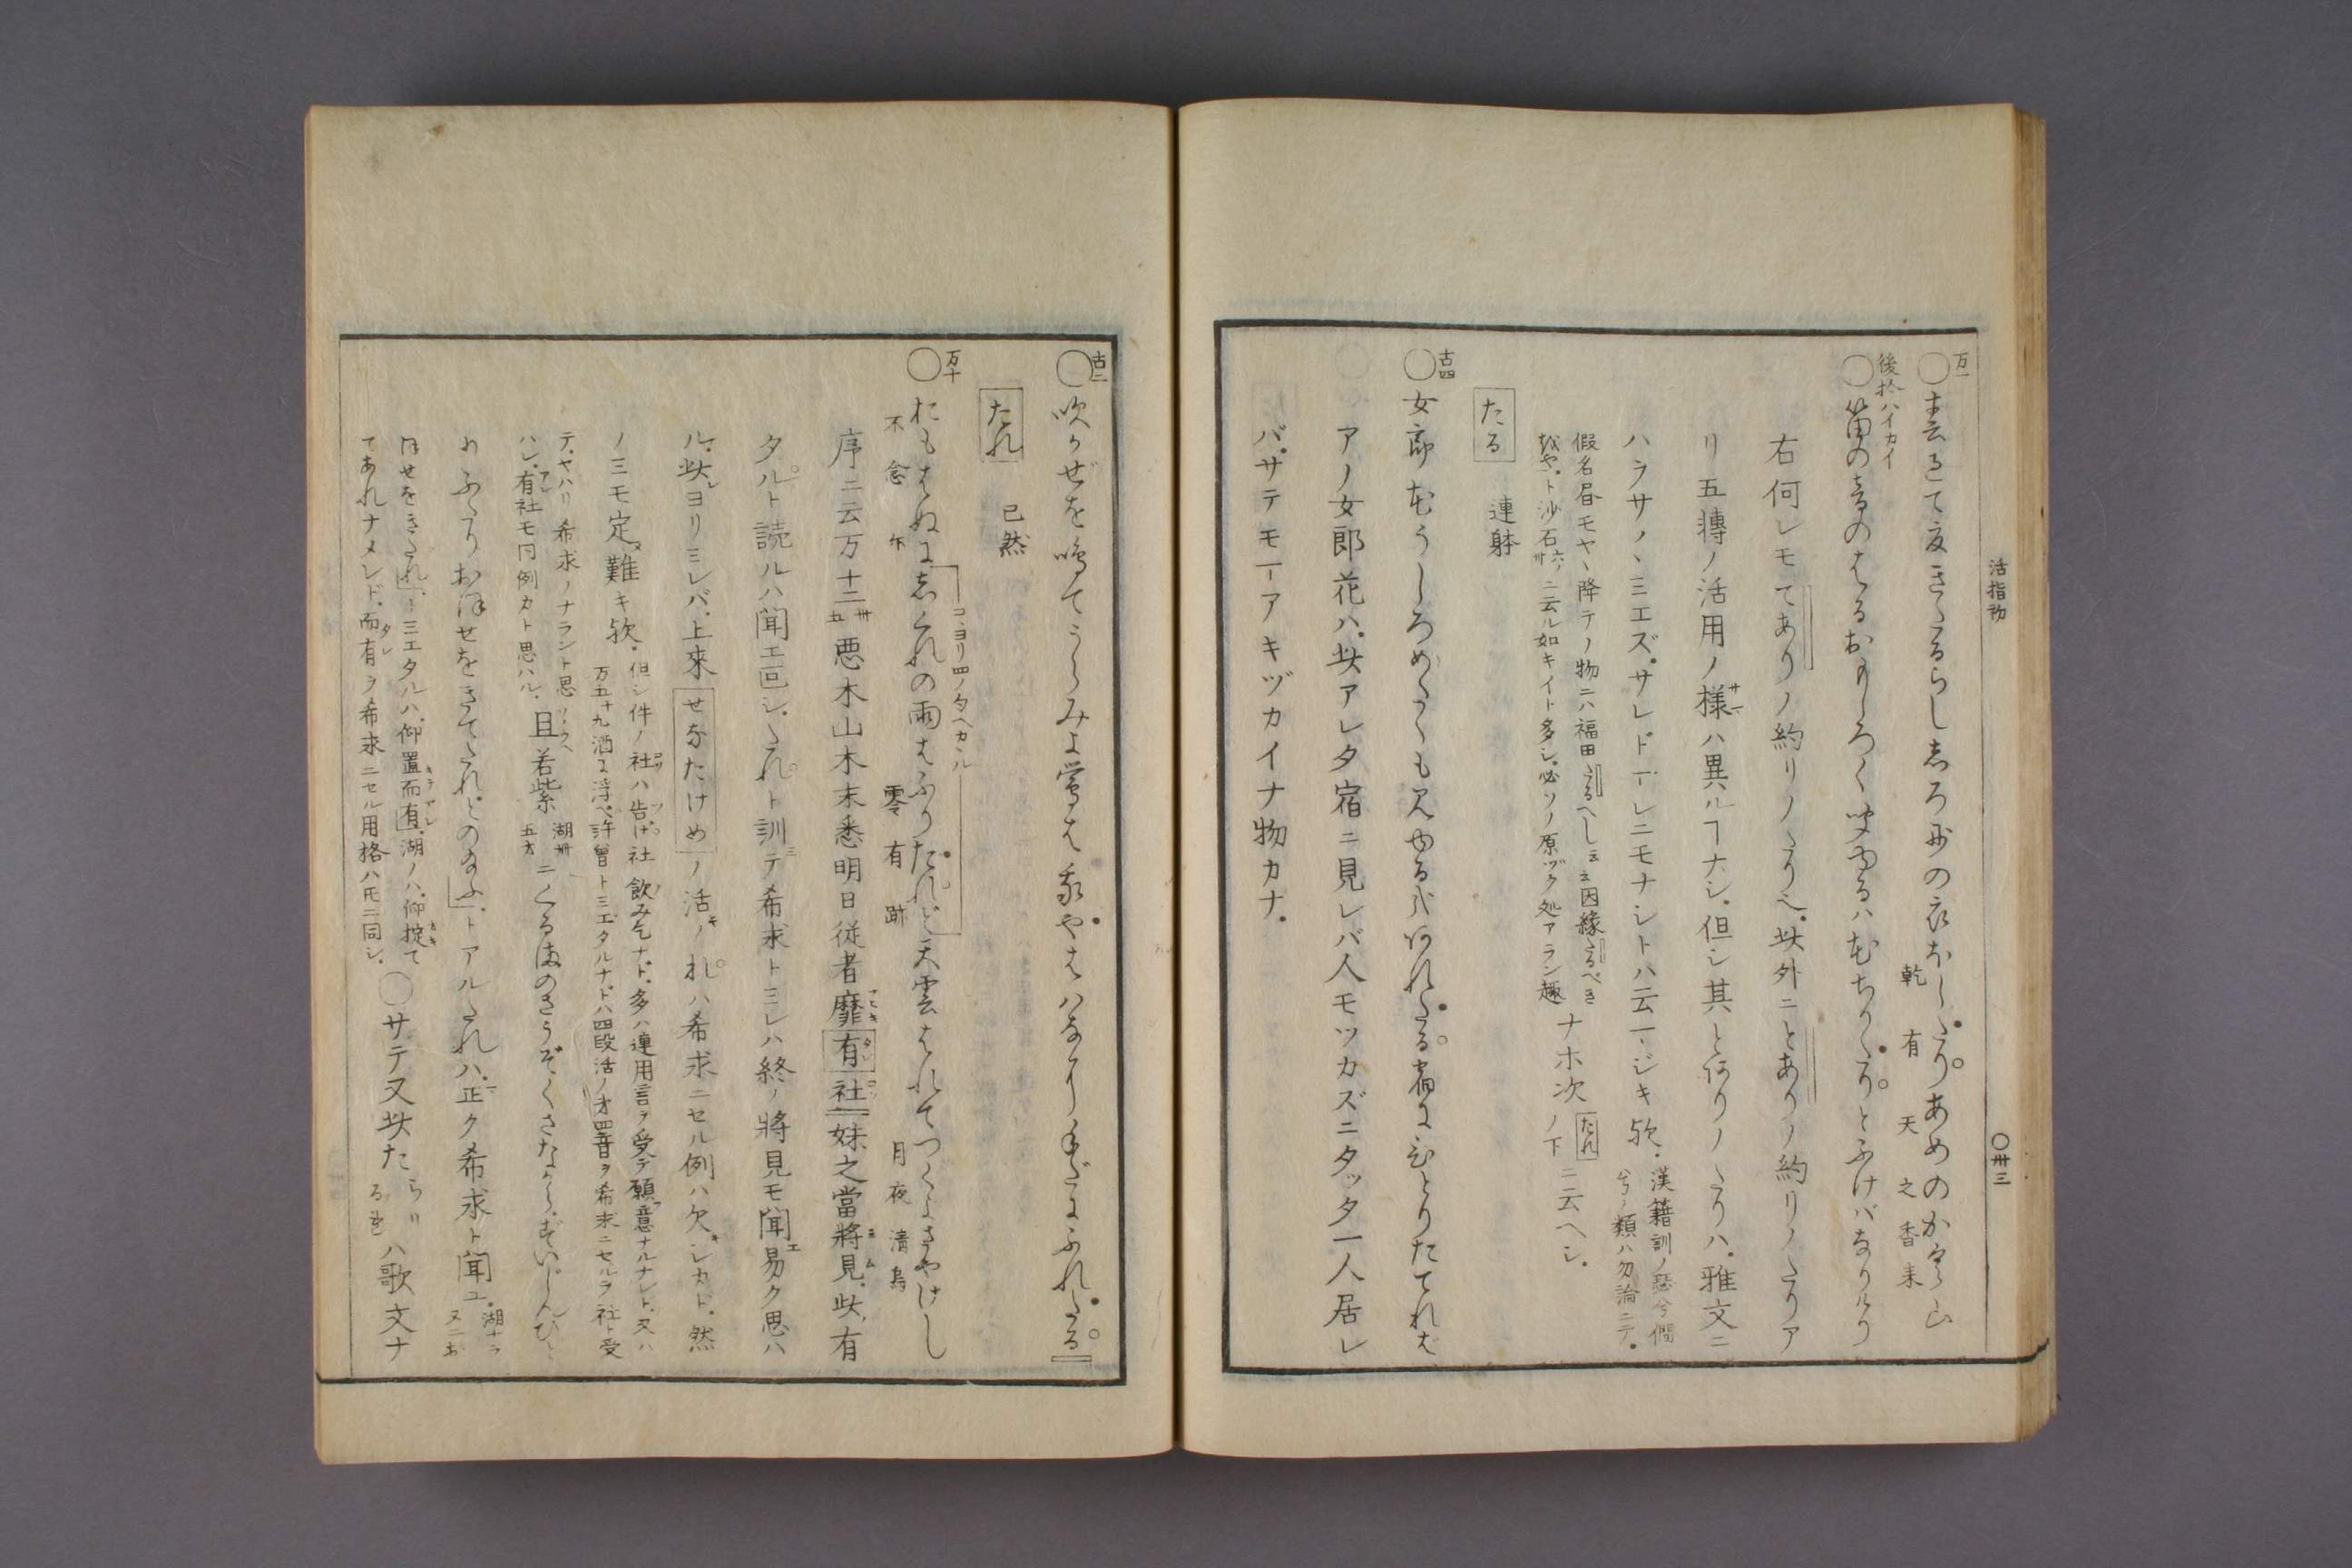 活指初
〇卅三
万一
〇春過て夏きたるらし志ろ妙の衣ほしたりあめのか久山
乾有 天之香来
後拾ハイカイ
〇笛の音のはるおもしろく聞ゆるハ花ちりたりとふけバなりけり
右何レモてありノ約リノたり也。此外ニとありノ約リノたりア
リ五轉ノ活用ノ様ハ異ルヿナシ。但シ其とありノたりハ。雅文ニ
ハヲサ〳〵ミエズ。サレド一ニモナシトハ云
漢籍訓ノ
類ハ勿論ニテ。
假名昼モヤヽ降テノ物ニハ福田たるへし云云因縁たるべき
哉や。ト沙石六ノ卅ニ云ル如キイト多シ。必ソノ原ヅク処アラン趣
ナホ次たれノ下ニ云ヘシ。
たる 連躰
古四
〇女郎花うしろめたくも見ゆる哉あれたる宿にひとりたてれば
アノ女郎花ハ。此アレタ宿ニ見レバ人モツカズニタッタ一人居レ
バ。サテモ一アキヅカイナ物カナ。
古二
〇吹かぜを鳴てうらみよ鶯は我やはハなに手だにふれたる
たれ 已然
万十
〇おもはぬに志ぐれの雨はふりたれど天雲はれてつくよさやけし
不念尓 零有跡 月夜清焉
コヽヨリ四ノタヘカヽル
序ニ云万十二卅五悪木山木末悉明日従者靡有社妹之當将見。此有
タルト読ルハ聞エ□シ。たれト訓テ希求トミレハ終ノ将見モ聞エ易ク思ハ
ル。此レヨリミレバ。上来せなたけめノ活キノれハ希求ニセル例ハ欠キシカド。然
ノミモ定メ難キ欤。
但シ件ノ社ハ告げ社飲みこそナド。多ハ連用言ヲ受テ願フ意ナルナレド。又ハ
万五十九酒に浮べ許曽トミエタルナドハ四段活ノ才四音ヲ希求ニセルヲ社ト受
テ。ヤハリ希求ノナラント思
ハシ。有社モ同例カト思ハル。
且若紫湖卅五才ニくる満のさうぞくさながらずいじんひ
わふたりおほせをきてたれとのたまふ。トアルたれハ。正ク希求ト聞ユ。
湖十ヲ
又ニお
ほせをきたれ。トミエタルハ。仰置而有。湖ノハ。仰掟て
てあれナメレド。而有ヲ希求ニセル用格ハ同シ。
〇サテ又此たらりるれハ歌文ナ